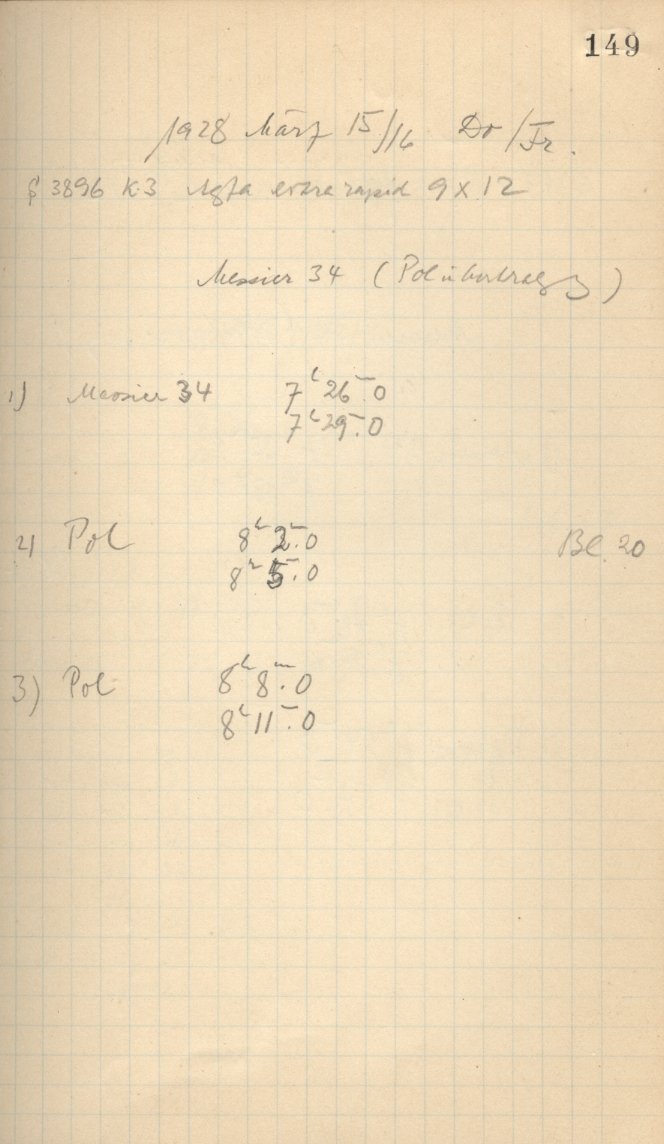 149
1928 März 15/16 Do/Fr.
3896 K3 Agfa extra rapid 9 x 12
Messier 34 (Polübertragg)
1) Messier 34 7h 26m.0
7h 29m.0
2) Pol 8h 2m.0 Bl. 20
8h 5m.0
3) Pol 8h 8m.0
8h 11m.0